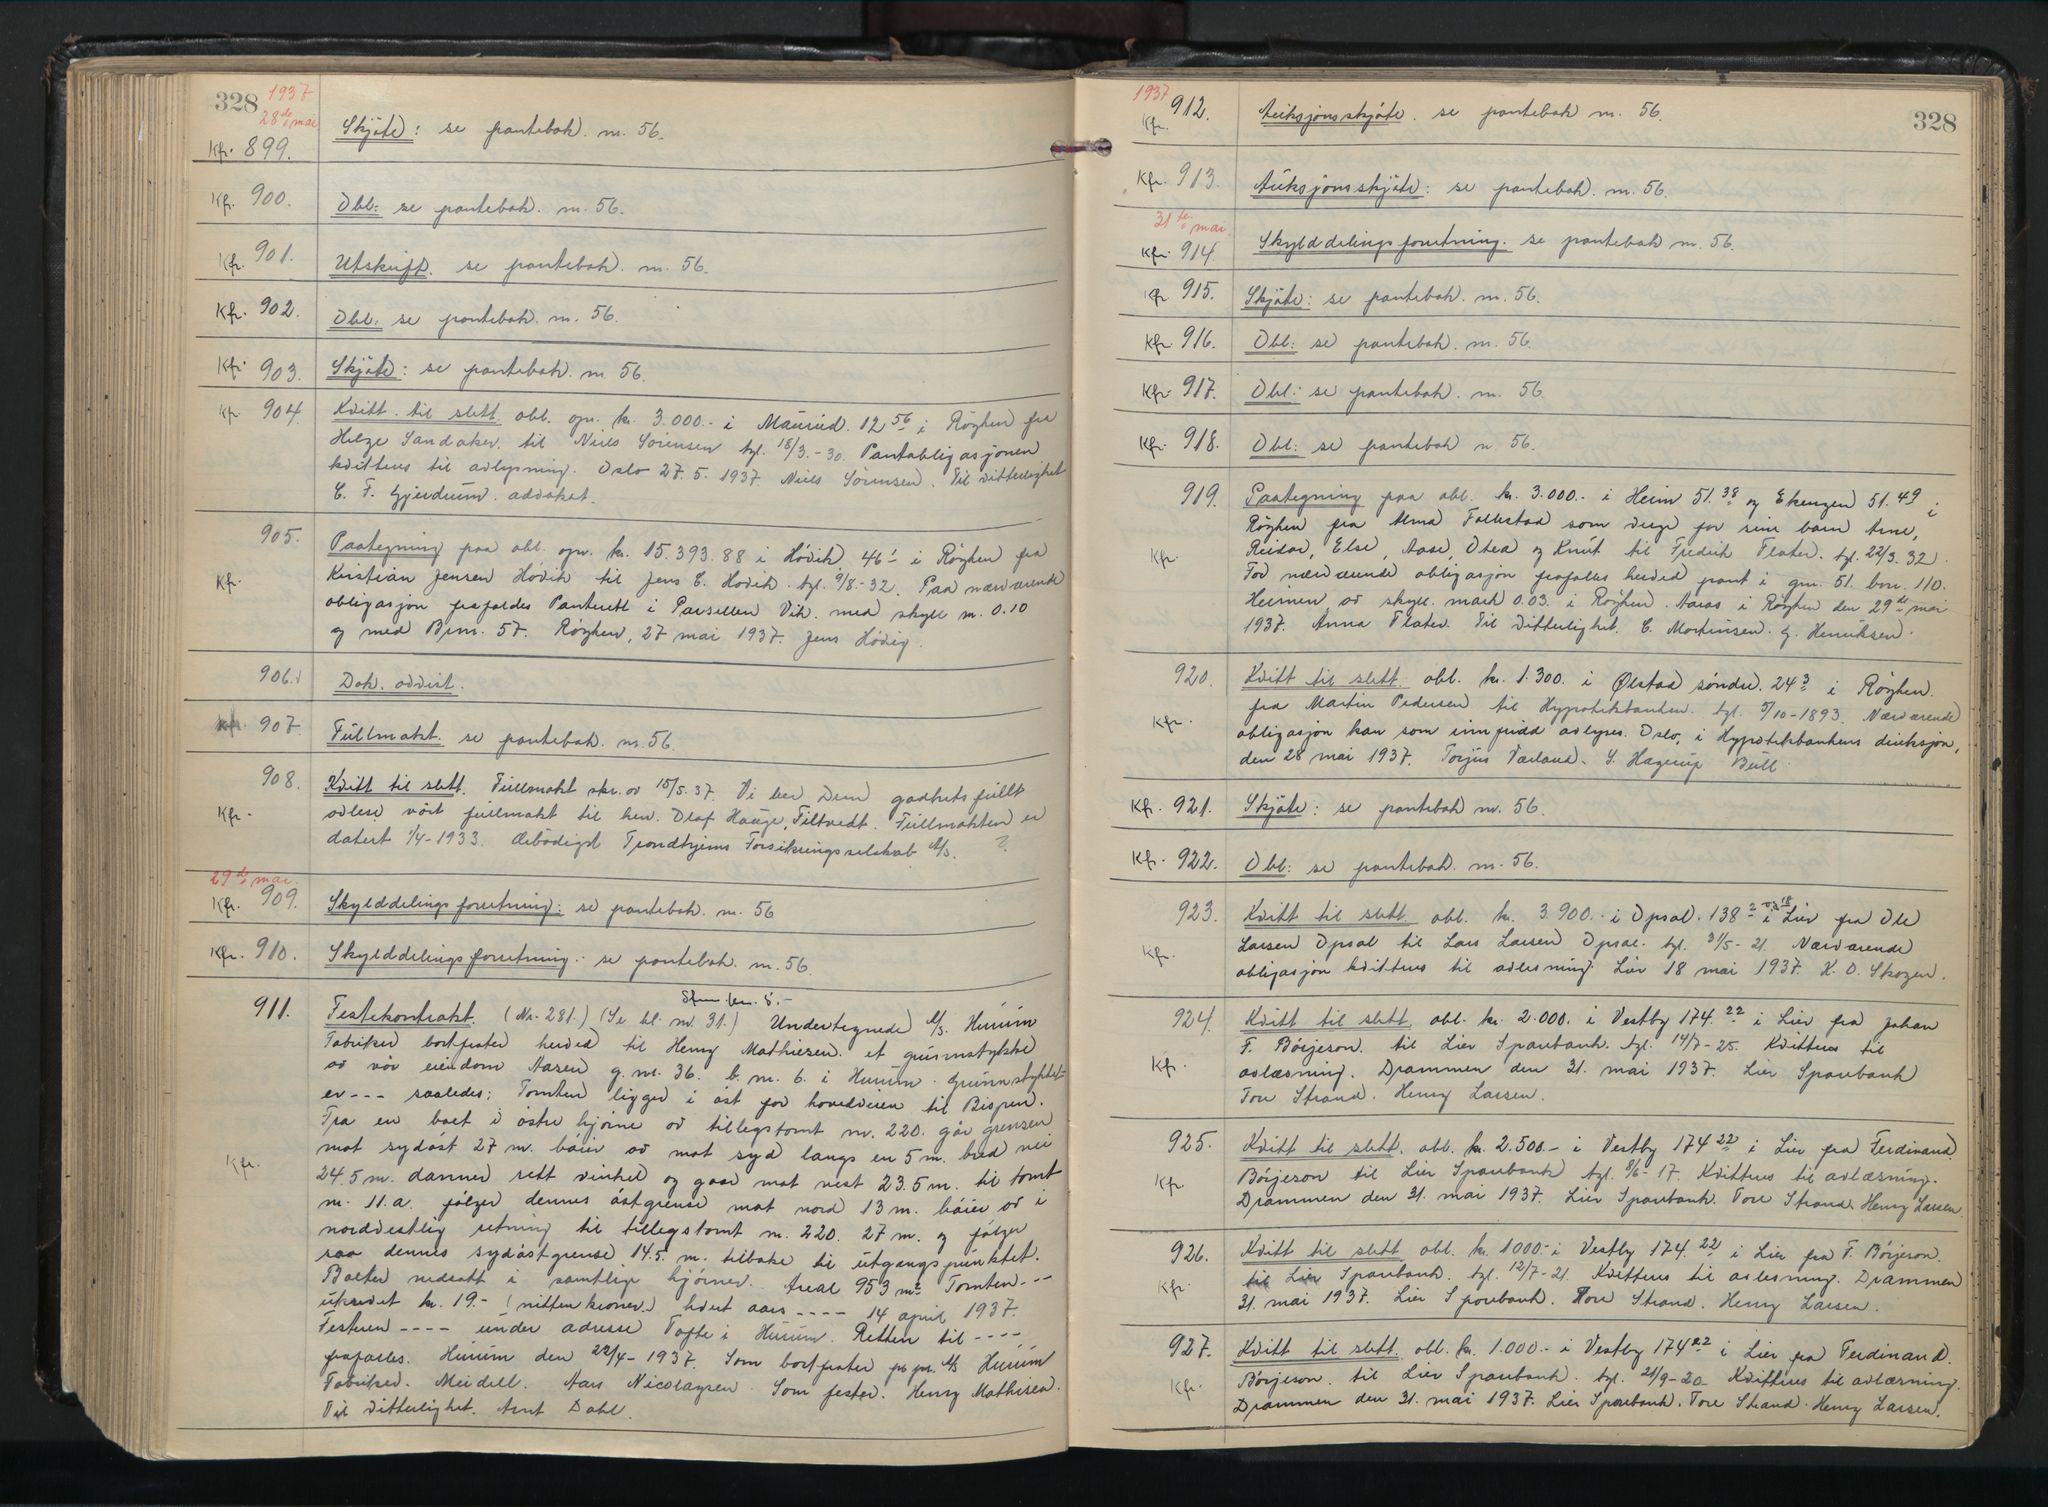 328 1937
28de mai
Kfr. 899. Skjøte: se pantebok. nr. 56.
Kfr. 900. Obl: se pantebok. nr. 56.
Kfr. 901. Utskrift. se pantebok. nr. 56.
Kfr. 902. Obl: se pantebok. nr. 56.
Kfr. 903. Skjøte: se pantebok. nr. 56.
Kfr 904. Kvitt. til slett. obl. opr. kr. 3.000.- i Maurud. 12 56 i Røyken fra
Helge Sandaker. til Niels Sørensen tgl. 18/3.-30. Pantobligasjonen
kvitteres til avlysning. Oslo 27.5.1937. Niels Sørensen. Til vitterlighet
C. F. Gjerdrum. advokat.
905. Paategning paa obl. opr. kr. 15.393.88 i Hövik 46 1 i Røyken fra
Kfr. Kristian Jensen Hövik til Jens C. Hövik. tgl. 9/8-32. Paa nærværende
obligasjon frafaldes Panterett i Parsellen Vik. med skyll m. 0.10
og med Brnr. 57. Røyken, 27 mai 1937. Jens Hövig.
906. Dok. avvist.
Kfr. 907. Fullmakt. se pantebok. nr. 56.
908. Kvitt til slett. Fullmakt skr. av 15/5.37. Vi ber Dem godhetsfullt
Kfr. avlese vårt fullmakt til herr. Olaf Hauge, Filtvedt. Fullmakten er
datert 1/4-1933. Ærbödigst Trondhjems Forsikringsselskab A/S. ?
29de mai.
Kfr. 909. Skylddelingsforretning: se pantebok. nr. 56
Kfr. 910. Skylddelingsforretning: se pantebok. nr. 56.
911. Festekontrakt. (Nr. 281.) (Se bl. nr. 31.) Undertegnede A/S. Hurum
Fabriker bortfester herved til Henry Mathiesen. et grunnstykke
av vår eiendom Aasen g.nr. 36. b.nr. 6. i Hurum. Grunnstykket
er --- saaledes: Tomten ligger i øst for hovedveien til Bispen.
Fra en bolt i østre hjørne av tillegstomt nr. 220. går grensen
mot sydöst 27 m. böier av mot syd langs en 5 m. bred vei
Kfr. 24.5 m. danner rett vinkel og gaar mot vest 23.5 m. til tomt
nr. 11.a. følger dennes östgrense mot nord 13 m. böier av i
nordvestlig retning til tillegstomt nr. 220. 27 m. og følger
saa dennes sydöstgrense 14.5 m. tilbake til utgangspunktet.
Bolter nedsatt i samtlige hjörner. Areal 953 m2 Tomten --
utredet kr. 19.- (nitten kroner.) hvert aar ---- 14 april 1937.
Festeren ---- under adresse Tofte i Hurum. Retten til ----
frafalles. Hurum den 22/4-1937. Som bortfester pr. pr. A/S Hurum
Fabriker. Meidell. Aars Nicolaysen. Som fester. Henry Mathisen.
Til vitterlighet. Arnt Dahl.
1937 328
Kfr. 912. Auksjonsskjøte. se pantebok nr. 56.
Kfr. 913. Auksjonsskjøte: se pantebok. nr. 56.
31te mai
Kfr. 914. Skylddelingsforretning. se pantebok nr. 56.
Kfr 915. Skjøte: se pantebok. nr. 56.
Kfr. 916. Obl: se pantebok. nr. 56.
Kfr. 917. Obl: se pantebok. nr. 56.
Kfr. 918. Obl: se pantebok nr. 56.
919. Paategning paa obl. kr. 3.000.- i Heim 51.38 og Ekengen 51.49 i
Røyken fra Alma Follestad som verge for sine barn Arne,
Kfr. Reidar, Else, Aase, Otea og Knut til Fredrik Flater. tgl. 22/3.32.
For nærværende obligasjon frafalles herved pant i gnr. 51. bnr. 110.
Heimen av skyll. mark 0.03. i Røyken. Aaros i Røyken den 29de mai
1937. Anna Flater. Til vitterlighet. C. Mortensen. G. Henriksen.
920. Kvitt til slett. obl. kr. 1.300. i Ølstad søndre. 24 3 i Røyken.
Kfr. fra Martin Pedersen til Hypotekbanken. tgl. 5/10-1893. Nærværende
obligasjon kan som innfridd avlyses. Oslo, i Hypotekbankens direksjon,
den 28 mai 1937. Torjus Værland. S. Hagerup Bull.
Kfr. 921. Skjøte: se pantebok nr. 56.
Kfr. 922. Obl: se pantebok. nr. 56.
923. Kvitt til slett obl. kr. 3.900.- i Opsal. 138 2 og 18 i Lier fra Ole
Kfr. Larsen Opsal til Lars Larsen Opsal. tgl. 31/5-21. Nærværende
obligasjon kvitteres til avlesning. Lier 18 mai 1937. K. O. Skogen.
924. Kvitt til slett. obl. kr. 2.000. i Vestby 174.22 i Lier fra Johan
Kfr. F. Börjeson. til Lier Sparebank. tgl. 14/7-25. Kvitteres til
avlæsning. Drammen den 31. mai 1937. Lier Sparebank
Tore Strand. Henry Larsen.
925. Kvitt til slett. obl. kr. 2.500.- i Vestby 174 22 i Lier fra Ferdinand.
Kfr. Börjeson til Lier Sparebank tgl. 8/6-17. Kvitteres til avlæsning.
Drammen den 31. mai 1937. Lier Sparebank. Tore Strand. Henry Larsen.
926. Kvitt til slett obl. kr. 1000.- i Vestby 174.22 i Lier fra F. Börjeson.
Kfr. til Lier Sparebank. tgl. 12/7-21. Kvitteres til avlesning. Drammen
31. mai 1937. Lier Sparebank. Tore Strand. Henry Larsen.
927. Kvitt til slett. obl. kr. 1.000.- i Vestby 174 22 i Lier fra Ferdinand.
Kfr. Börjeson. til Lier Sparebank. tgl. 21/9-20 Kvitteres til avlæsning.
Drammen den 31. mai 1937. Lier Sparebank. Tore Strand. Henry Larsen.